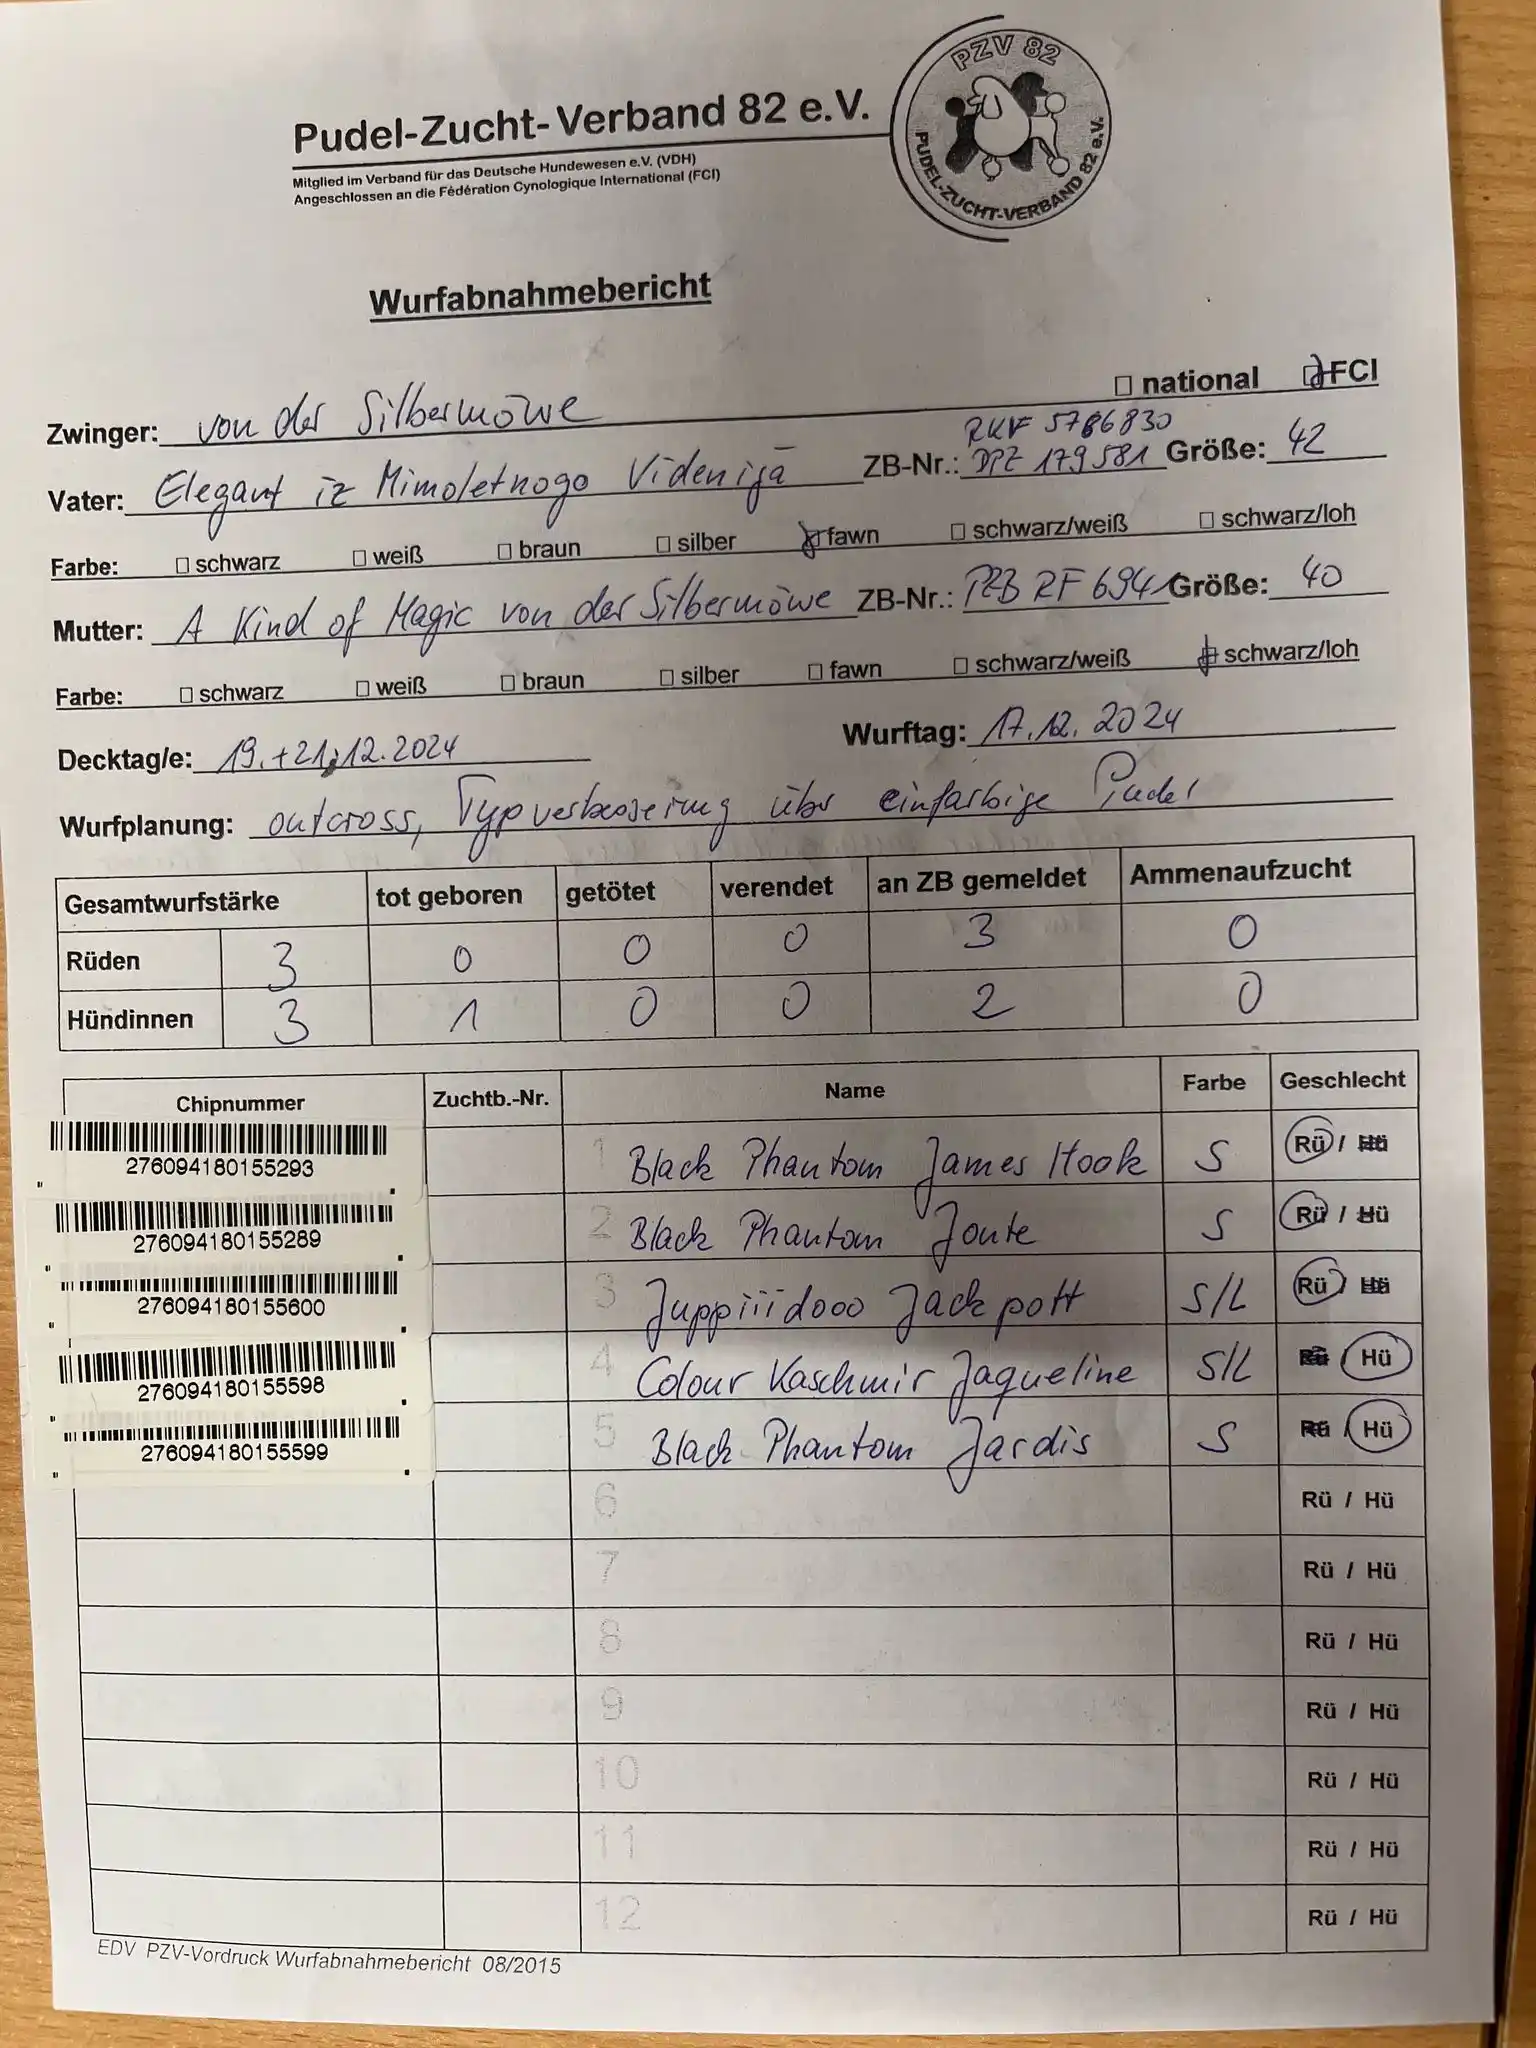 PZV 82
PUDEL-ZUCHT-VERBAND 82 e.V.
Pudel-Zucht-Verband 82 e.V.
Mitglied im Verband für das Deutsche Hundewesen e.V. (VDH)
Angeschlossen an die Fédération Cynologique International (FCI)
Wurfabnahmebericht
☐ national ☒ FCI
Zwinger: von der Silbermöwe
RKF 5786830
Vater: Elegant iz Mimoletnogo Videnijā ZB-Nr.: DPZ 179581 Größe: 42
Farbe: ☐ schwarz ☐ weiß ☐ braun ☐ silber ☒ fawn ☐ schwarz/weiß ☐ schwarz/loh
Mutter: A Kind of Magic von der Silbermöwe ZB-Nr.: PZB RF 6941 Größe: 40
Farbe: ☐ schwarz ☐ weiß ☐ braun ☐ silber ☐ fawn ☐ schwarz/weiß ☒ schwarz/loh
Decktag/e: 19.+21.12.2024 Wurftag: 17.12.2024
Wurfplanung: outcross, Typverbesserung über einfarbige Pudel
Gesamtwurfstärke tot geboren getötet verendet an ZB gemeldet Ammenaufzucht
Rüden 3 0 0 0 3 0
Hündinnen 3 1 0 0 2 0
Chipnummer Zuchtb.-Nr. Name Farbe Geschlecht
276094180155293 1 Black Phantom James Hook S Rü / Hü
276094180155289 2 Black Phantom Jonte S Rü / Hü
276094180155600 3 Juppiiidooo Jackpott S/L Rü / Hü
276094180155598 4 Colour Kaschmir Jaqueline S/L Rü / Hü
276094180155599 5 Black Phantom Jardis S Rü / Hü
6 Rü / Hü
7 Rü / Hü
8 Rü / Hü
9 Rü / Hü
10 Rü / Hü
11 Rü / Hü
12 Rü / Hü
EDV PZV-Vordruck Wurfabnahmebericht 08/2015